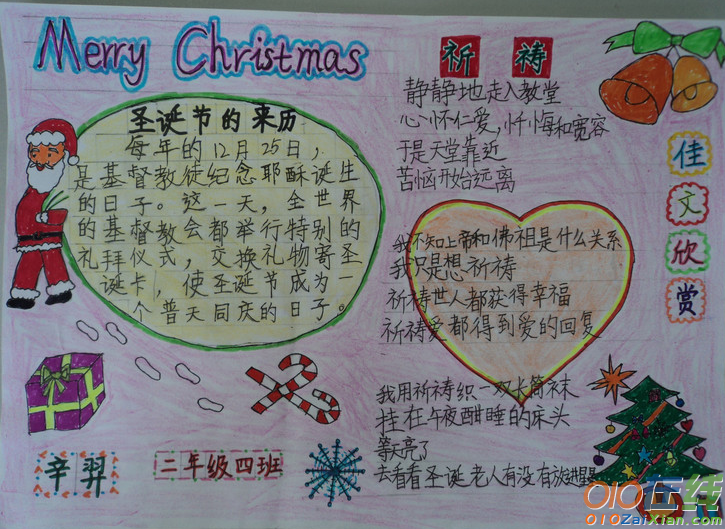 Merry Christmas
圣诞节的来历
每年的12月25日，
是基督教徒纪念耶酥诞生
的日子。这一天，全世界
的基督教会都举行特别的
礼拜仪式，交换礼物寄圣
诞卡，使圣诞节成为一
个普天同庆的日子。
辛羿
二年级四班
祈祷
静静地走入教堂
心怀仁爱，忏悔和宽容
于是天堂靠近
苦恼开始远离
我不知上帝和佛祖是什么关系
我只是想祈祷
祈祷世人都获得幸福
祈祷爱都得到爱的回复
我用祈祷织一双长筒袜
挂在午夜酣睡的床头
等天亮了
去看看圣诞老人有没有放进
佳
文
欣
赏
010在线
010ZaiXian.com